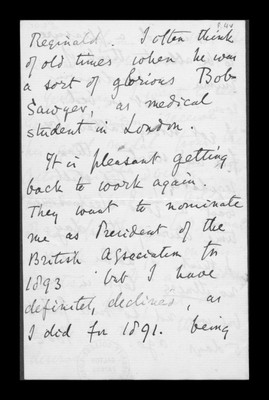 Reginald. I often think
of old times when he was
a sort of glorious Bob
Sawyer, as medical
student in London.
It is pleasant getting
back to work again.
They want to nominate
me as President of the
British Association for
1893 but I have
definitely declined, as
I did for 1891. being